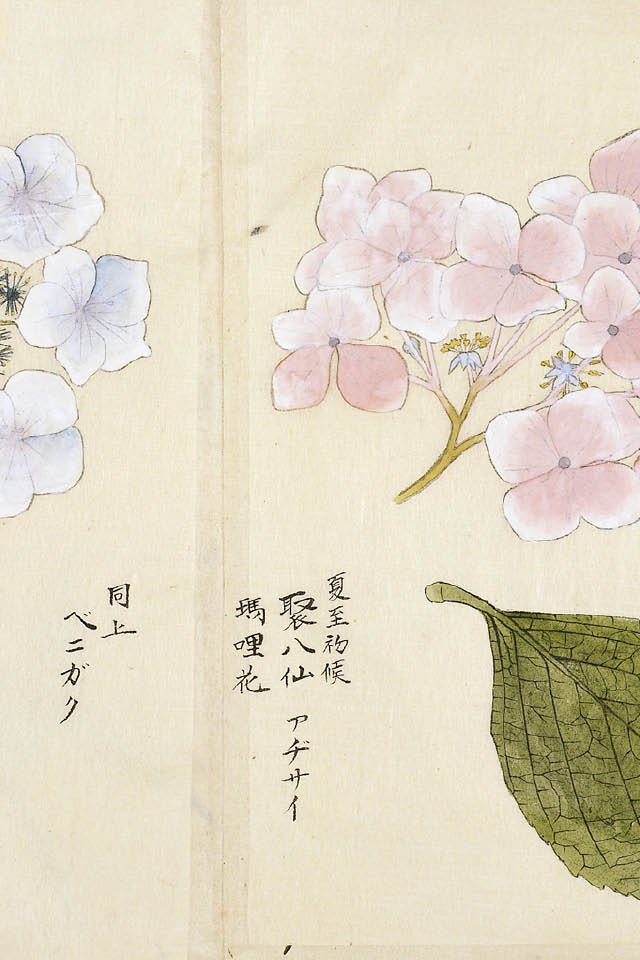 夏至初候
聚八仙 アヂサイ
瑪哩花
同上
ベニガク